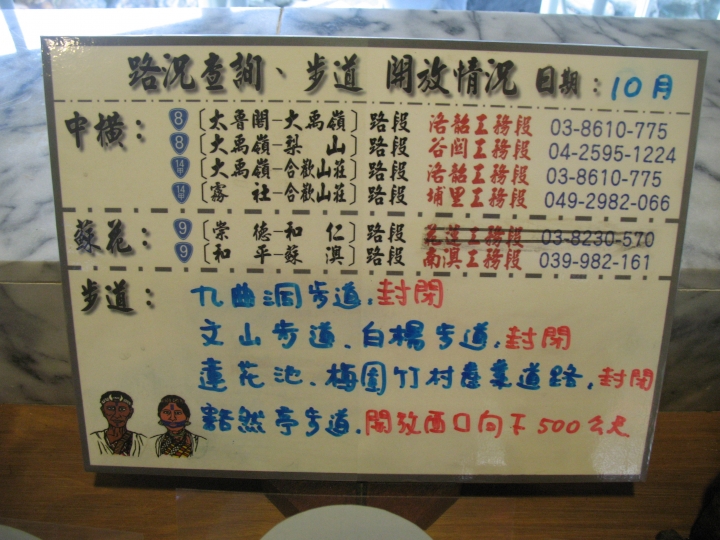 路況查詢、步道 開放情況 日期：10月
中橫：
8〔太魯閣－大禹嶺〕路段 洛韶工務段 03-8610-775
8〔大禹嶺－梨 山〕路段 谷關工務段 04-2595-1224
14甲〔大禹嶺－合歡山莊〕路段 洛韶工務段 03-8610-775
14甲〔霧 社－合歡山莊〕路段 埔里工務段 049-2982-066
蘇花：
9〔崇 德－和 仁〕路段 花蓮工務段 03-8230-570
9〔和 平－蘇 澳〕路段 南澳工務段 039-982-161
步道：
九曲洞步道，封閉
文山步道、白楊步道，封閉
蓮花池、梅園竹村產業道路，封閉
豁然亭步道，開放西口向下500公尺